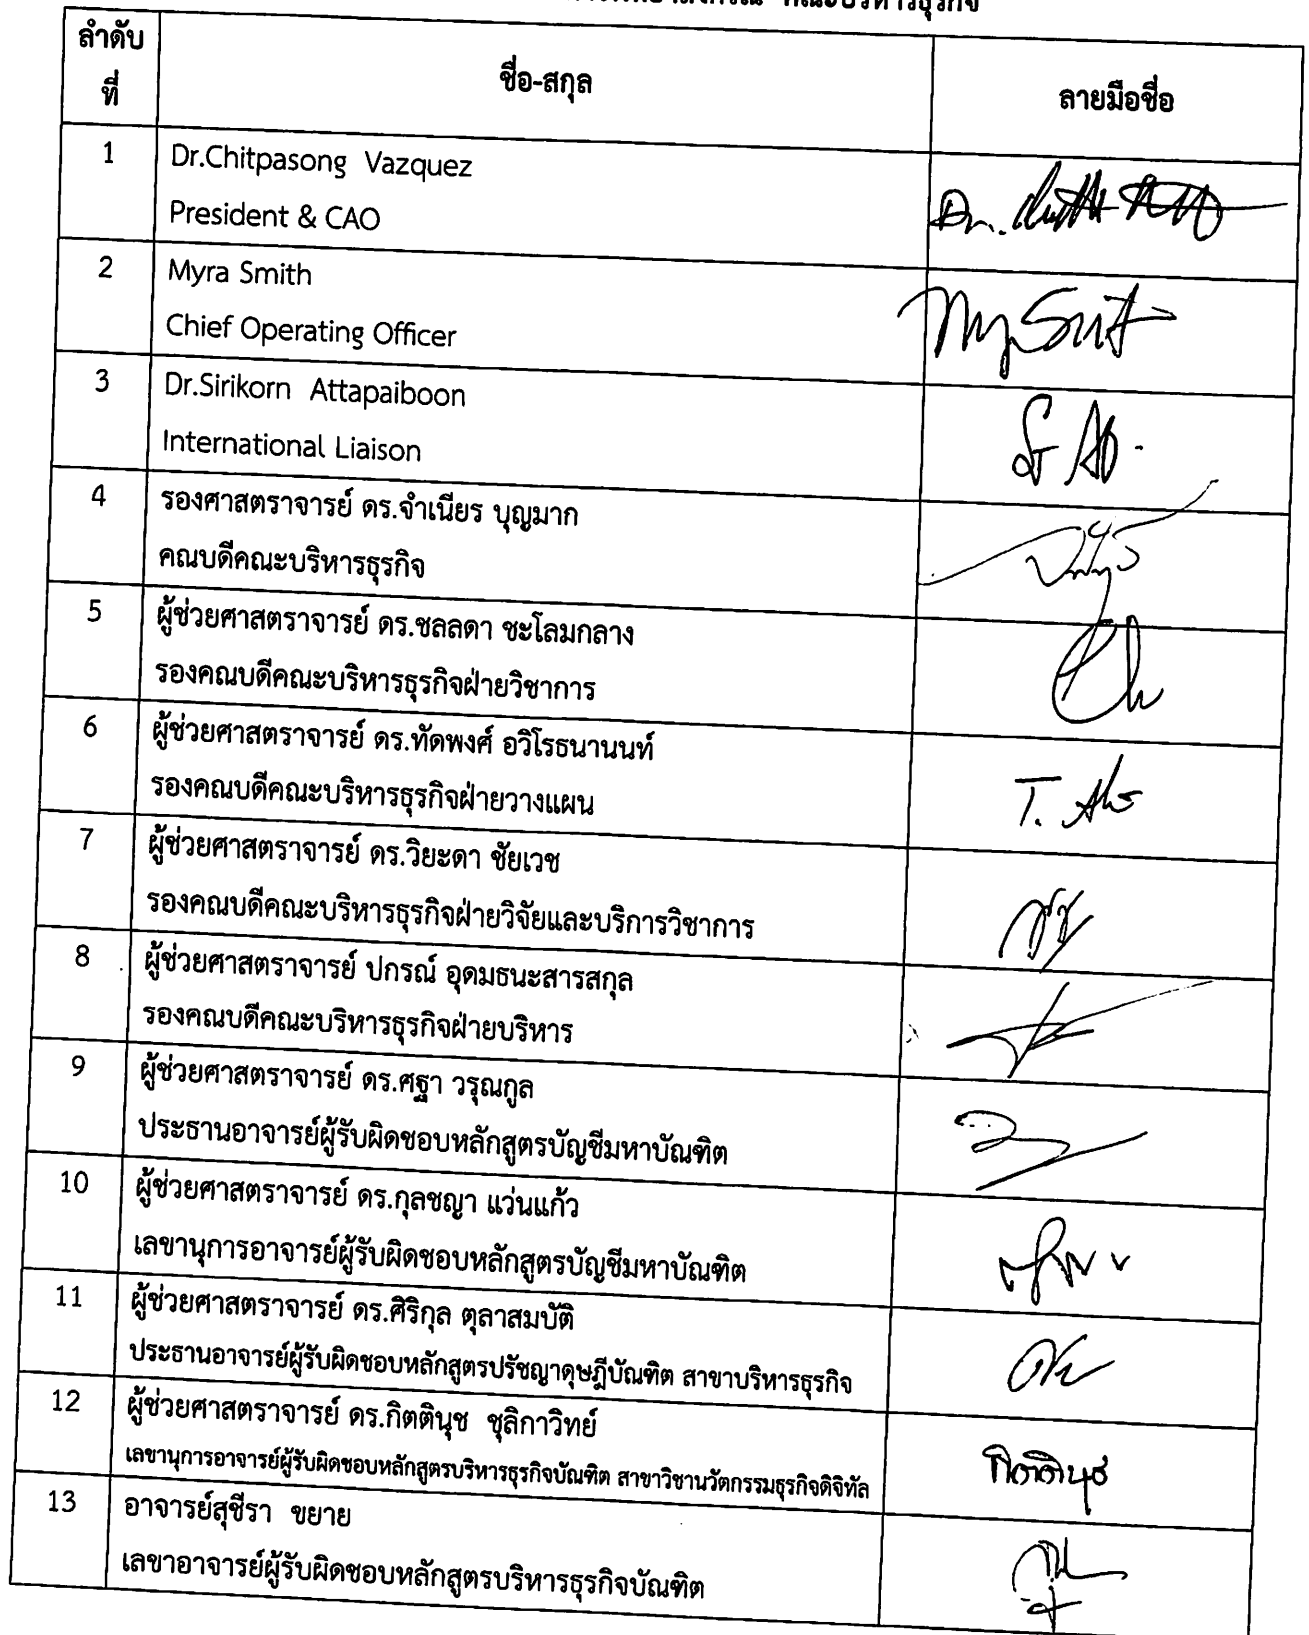 คณะบริหารธุรกิจ
ลำดับ
ที่
ชื่อ-สกุล
ลายมือชื่อ
1
Dr.Chitpasong Vazquez
President & CAO
2
Myra Smith
Chief Operating Officer
3
Dr.Sirikorn Attapaiboon
International Liaison
4
รองศาสตราจารย์ ดร.จำเนียร บุญมาก
คณบดีคณะบริหารธุรกิจ
5
ผู้ช่วยศาสตราจารย์ ดร.ชลลดา ชะโลมกลาง
รองคณบดีคณะบริหารธุรกิจฝ่ายวิชาการ
6
ผู้ช่วยศาสตราจารย์ ดร.ทัดพงศ์ อวิโรธนานนท์
รองคณบดีคณะบริหารธุรกิจฝ่ายวางแผน
T.
7
ผู้ช่วยศาสตราจารย์ ดร.วิยะดา ชัยเวช
รองคณบดีคณะบริหารธุรกิจฝ่ายวิจัยและบริการวิชาการ
8
ผู้ช่วยศาสตราจารย์ ปกรณ์ อุดมธนะสารสกุล
รองคณบดีคณะบริหารธุรกิจฝ่ายบริหาร
9
ผู้ช่วยศาสตราจารย์ ดร.ศฐา วรุณกูล
ประธานอาจารย์ผู้รับผิดชอบหลักสูตรบัญชีมหาบัณฑิต
10
ผู้ช่วยศาสตราจารย์ ดร.กุลชญา แว่นแก้ว
เลขานุการอาจารย์ผู้รับผิดชอบหลักสูตรบัญชีมหาบัณฑิต
11
ผู้ช่วยศาสตราจารย์ ดร.ศิริกุล ตุลาสมบัติ
ประธานอาจารย์ผู้รับผิดชอบหลักสูตรปรัชญาดุษฎีบัณฑิต สาขาบริหารธุรกิจ
12
ผู้ช่วยศาสตราจารย์ ดร.กิตตินุช ชุลิกาวิทย์
เลขานุการอาจารย์ผู้รับผิดชอบหลักสูตรบริหารธุรกิจบัณฑิต สาขาวิชานวัตกรรมธุรกิจดิจิทัล
กิตตินุช
13
อาจารย์สุชีรา ขยาย
เลขาอาจารย์ผู้รับผิดชอบหลักสูตรบริหารธุรกิจบัณฑิต